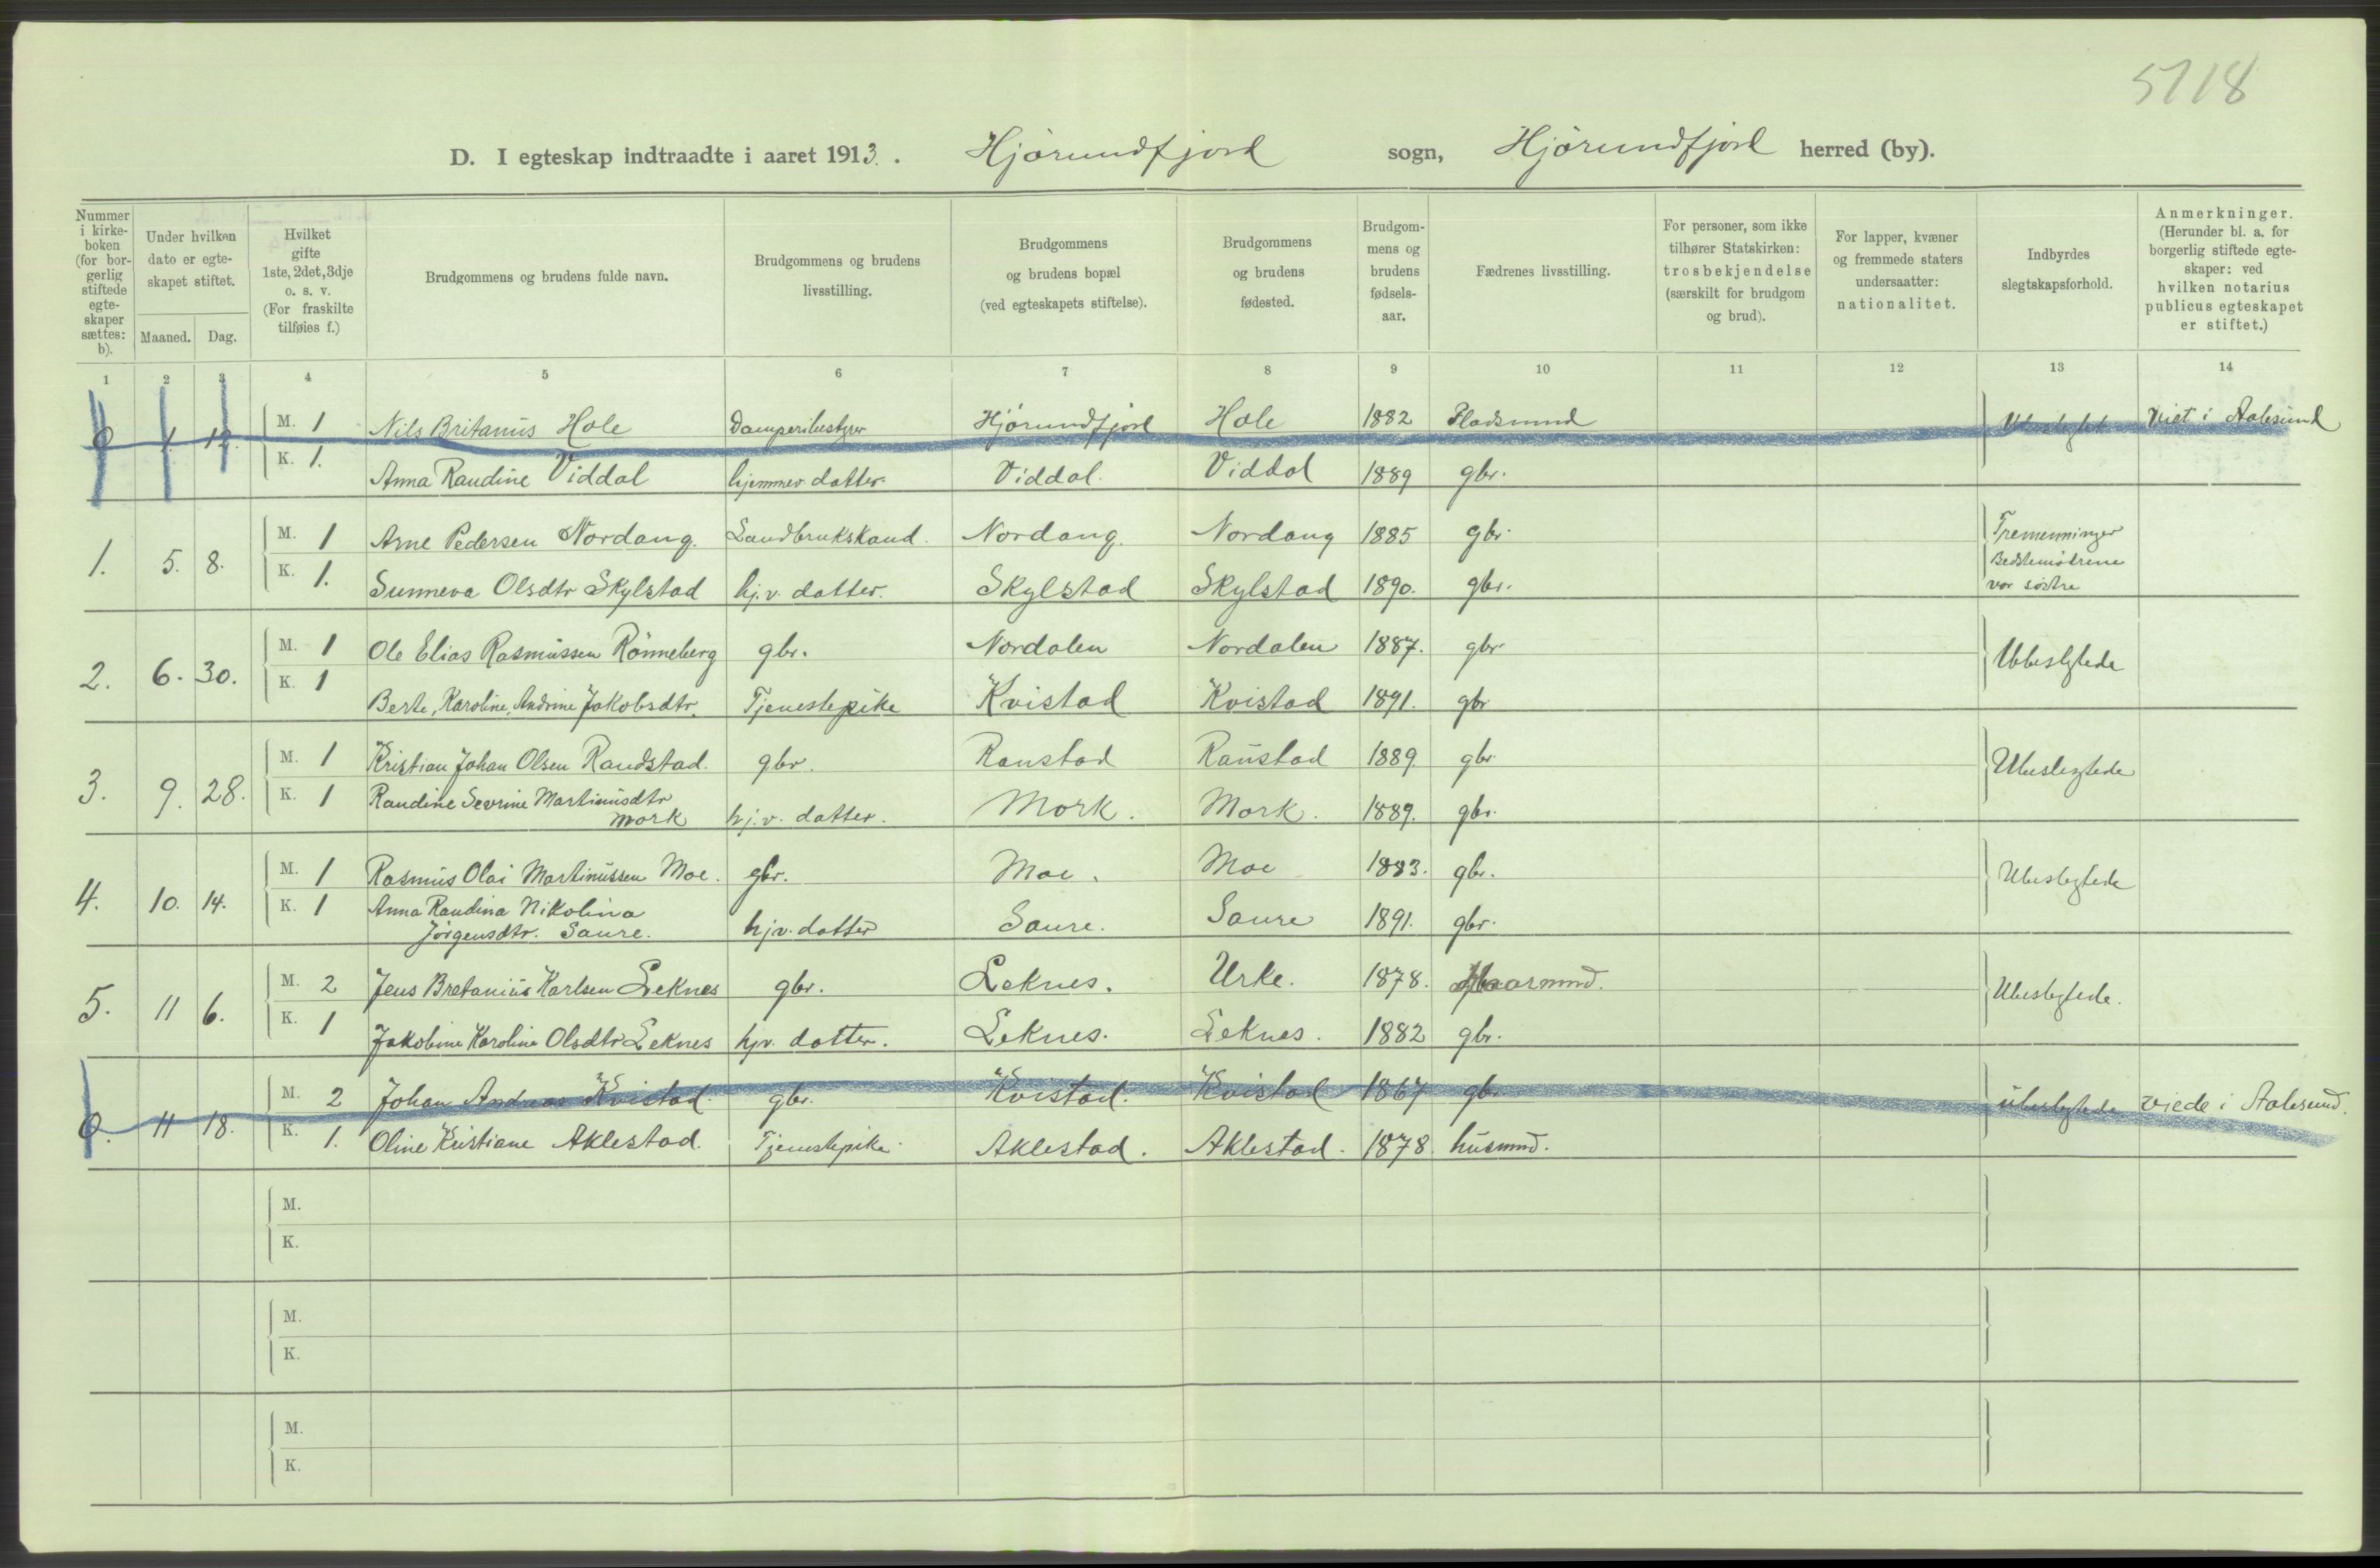 5718
D. I egteskap indtraadte i aaret 1913. Hjørundfjord sogn, Hjørundfjord herred (by).
Nummer i kirke-boken (for bor-gerlig stiftede egte-skaper sættes: b).
Under hvilken dato er egte-skapet stiftet.
Maaned. Dag.
Hvilket gifte 1ste, 2det, 3dje o. s. v. (For fraskilte tilføies f.)
Brudgommens og brudens fulde navn.
Brudgommens og brudens livsstilling.
Brudgommens og brudens bopæl (ved egteskapets stiftelse).
Brudgommens og brudens fødested.
Brudgom-mens og brudens fødsels-aar.
Fædrenes livsstilling.
For personer, som ikke tilhører Statskirken: trosbekjendelse (særskilt for brudgom og brud).
For lapper, kvæner og fremmede staters undersaatter: nationalitet.
Indbyrdes slegtskapsforhold.
Anmerkninger. (Herunder bl. a. for borgerlig stiftede egte-skaper: ved hvilken notarius publicus egteskapet er stiftet.)
1 2 3 4 5 6 7 8 9 10 11 12 13 14
0 1. 12. M. 1 Nils Britanius Hole Hjørundfjord Hole 1882 Pladsmund Ubeslegtet Viet i Aalesund
K. 1. Anna Raudine Viddal hjemmev. datter. Viddal. Viddal 1889 gbr.
1. 5. 8. M. 1 Arne Pedersen Nordang. Landbrukskand. Nordang. Nordang 1885 gbr. Tremenninger
Bedstemødrene
K. 1. Sunneva Olsdtr Skylstad hj.v. datter. Skylstad Skylstad 1890. gbr. var søstre
2. 6. 30. M. 1 Ole Elias Rasmussen Rønneberg gbr. Nordalen Nordalen 1887. gbr Ubeslegtede
K. 1 Berte, Karoline, Andrine Jakobsdtr. Tjenestepike Kvistad Kvistad 1891. gbr
3. 9. 28. M. 1 Kristian Johan Olsen Raudstad. gbr. Raustad Raustad 1889 gbr. Ubeslegtede
K. 1 Raudine Sevrine Martinusdtr
Mork hj.v. datter. Mork. Mork. 1889. gbr.
4. 10. 14. M. 1 Rasmus Olai Martinussen Moe. gbr. Moe. Moe 1883. gbr. Ubeslegtede
K. 1 Anna Raudina Nikolina
Jørgensdtr. Saure. hjv. datter Saure. Saure 1891. gbr.
5. 11 6. M. 2 Jens Bretanius Karlsen Leknes gbr. Leknes. Urke. 1878. Ubeslegtede.
K. 1 Jakobine Karoline Olsdtr Leknes hjv. datter. Leknes. Leknes. 1882 gbr.
0. 11 18. M. 2 Johan Andreas Kvistad. gbr. Kvistad. Kvistad 1867 gbr ubeslegtede viede i Aalesund.
K. 1. Oline Kristiane Aklestad. Tjenestepike. Aklestad. Aklestad. 1878. husmnd.
M.
K.
M.
K.
M.
K.